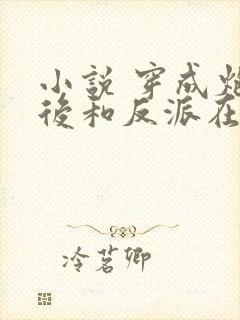 小説 穿成
後和反派在
冷茗卿